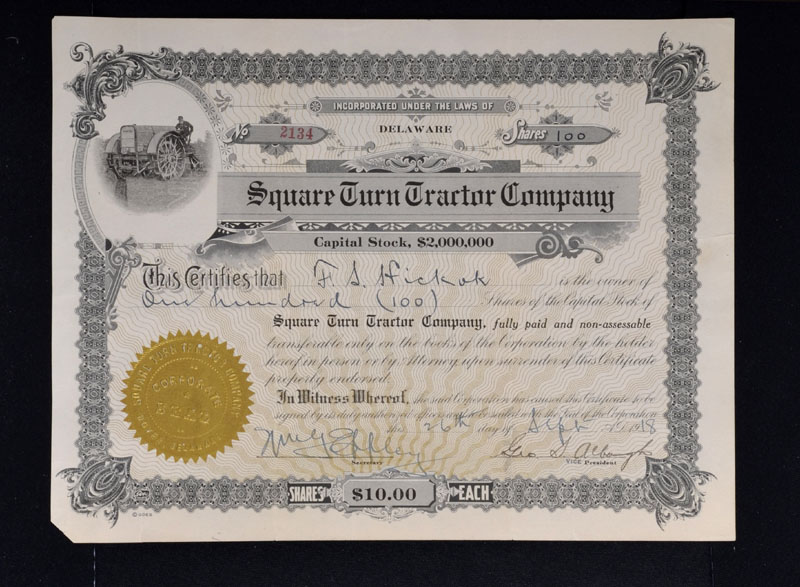 INCORPORATED UNDER THE LAWS OF
No 2134
DELAWARE
Shares 100
Square Turn Tractor Company
Capital Stock, $2,000,000
This Certifies that F. S. Hickok is the owner of
One hundred (100) Shares of the Capital Stock of
Square Turn Tractor Company, fully paid and non-assessable
transferable only on the books of the Corporation by the holder
hereof in person or by Attorney upon surrender of this Certificate
properly endorsed.
In Witness Whereof, the said Corporation has caused this Certificate to be
signed by its duly authorized officers and to be sealed with the Seal of the Corporation
this 26th day of Sept A.D. 1918
Secretary
VICE President
SQUARE TURN TRACTOR COMPANY
CORPORATE
SEAL
SHARES $10.00 EACH